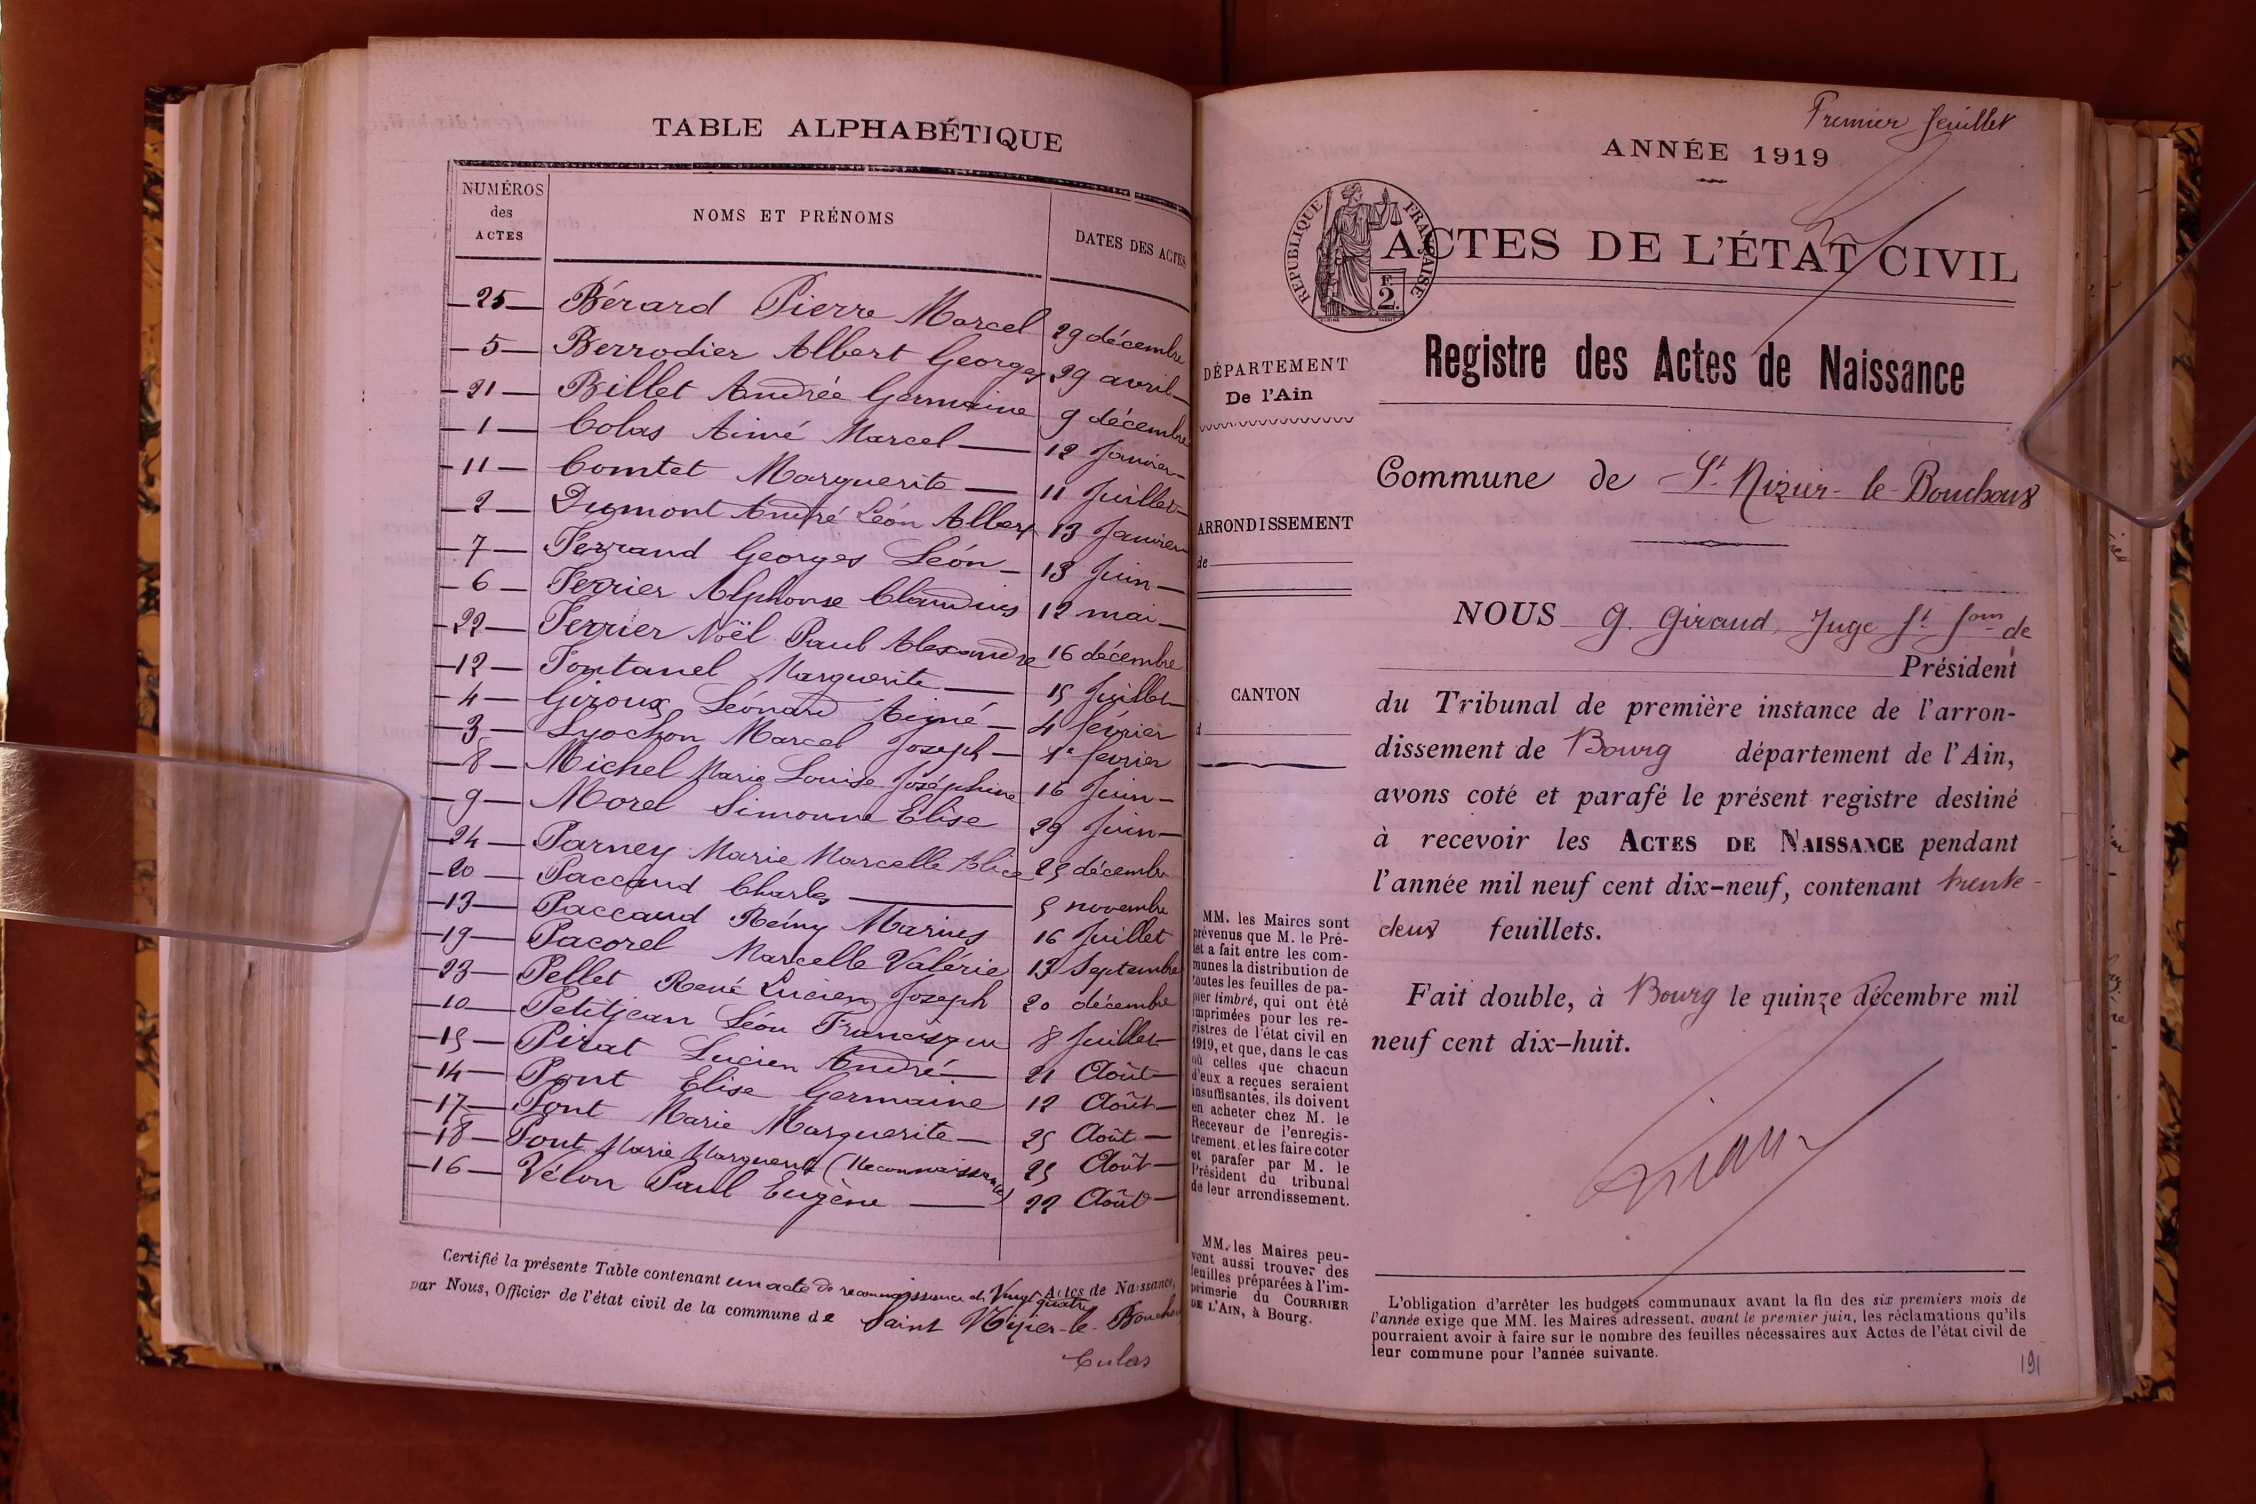 TABLE ALPHABÉTIQUE
NUMÉROS des ACTES NOMS ET PRÉNOMS DATES DES ACTES
25 Bérard Pierre Marcel 29 décembre
5 Berrodier Albert Georges 29 avril
21 Billet Andrée Germaine 9 décembre
1 Colas Aimé Marcel 12 Janvier
11 Comtet Marguerite 11 Juillet
2 Dumont André Léon Albert 13 Janvier
7 Ferrand Georges Léon 13 Juin
6 Ferrier Alphonse Claudius 12 mai
22 Ferrier Noël Paul Alexandre 16 décembre
12 Fontanel Marguerite 15 Juillet
4 Giroux Léonard Aymé 4 février
3 Lyochon Marcel Joseph 1er fevrier
8 Michel Marie Louise Joséphine 16 Juin
9 Morel Simonne Elise 29 Juin
24 Parney Marie Marcelle Alice 25 décembre
20 Paccaud Charles 5 novembre
13 Paccaud Rémy Marius 16 Juillet
19 Pacorel Marcelle Valérie 13 Septembre
23 Pellet René Lucien Joseph 20 décembre
10 Petitjean Léon Francisque 8 Juillet
15 Pirat Lucien André 21 Août
14 Pont Elise Germaine 12 Août
17 Pont Marie Marguerite 25 Août
18 Pont Marie Marguerite (Reconnaissance) 25 Août
16 Vélon Paul Eugène 22 Août
Certifié la présente Table contenant un acte de reconnaissance et Vingt quatre Actes de Naissance,
par Nous, Officier de l'état civil de la commune de Saint Nizier-le-Bouchoux
Culas
Premier feuillet
ANNÉE 1919
RÉPUBLIQUE FRANÇAISE
2
ACTES DE L'ÉTAT CIVIL
Registre des Actes de Naissance
DÉPARTEMENT
De l'Ain
Commune de St Nizier-le-Bouchoux
ARRONDISSEMENT
de
NOUS G. Giraud, Juge ft fons de
Président
CANTON
d
du Tribunal de première instance de l'arron-
dissement de Bourg département de l'Ain,
avons coté et parafé le présent registre destiné
à recevoir les ACTES DE NAISSANCE pendant
l'année mil neuf cent dix-neuf, contenant trente-
deux feuillets.
Fait double, à Bourg le quinze décembre mil
neuf cent dix-huit.
Giraud
MM. les Maires sont
prévenus que M. le Pré-
fet a fait entre les com-
munes la distribution de
toutes les feuilles de pa-
pier timbré, qui ont été
imprimées pour les re-
gistres de l'état civil en
1919, et que, dans le cas
où celles que chacun
d'eux a reçues seraient
insuffisantes, ils doivent
en acheter chez M. le
Receveur de l'enregis-
trement et les faire coter
et parafer par M. le
Président du tribunal
de leur arrondissement.
MM. les Maires peu-
vent aussi trouver des
feuilles préparées à l'im-
primerie du COURRIER
DE L'AIN, à Bourg.
L'obligation d'arrêter les budgets communaux avant la fin des six premiers mois de
l'année exige que MM. les Maires adressent, avant le premier juin, les réclamations qu'ils
pourraient avoir à faire sur le nombre des feuilles nécessaires aux Actes de l'état civil de
leur commune pour l'année suivante.
191